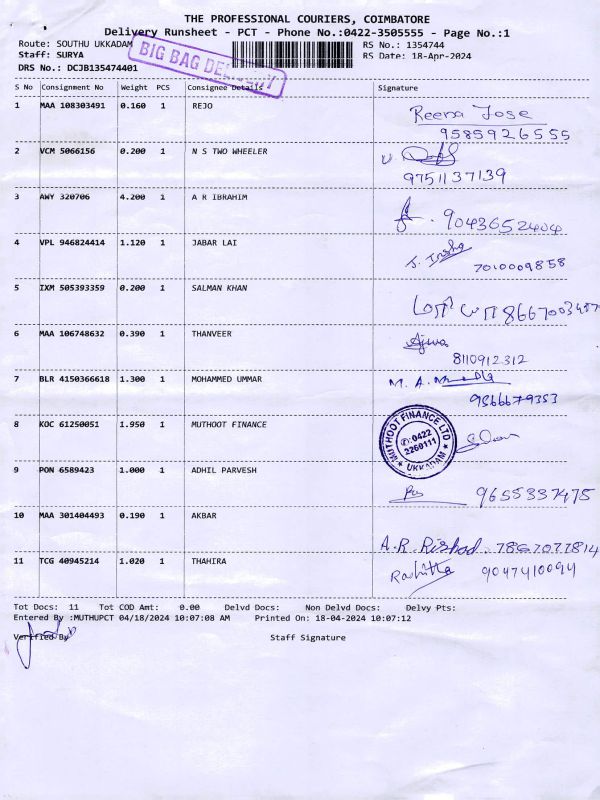 THE PROFESSIONAL COURIERS, COIMBATORE
Delivery Runsheet - PCT - Phone No.:0422-3505555 - Page No.:1
Route: SOUTHU UKKADAM
RS No.: 1354744
Staff: SURYA
RS Date: 18-Apr-2024
DRS No.: DCJB135474401
BIG BAG DELIVERY
S No Consignment No Weight PCS Consignee Details Signature
1 MAA 108303491 0.160 1 REJO Reena Jose
9585926555
2 VCM 5066156 0.200 1 N S TWO WHEELER
9751137139
3 AWY 320706 4.200 1 A R IBRAHIM
9043652404
4 VPL 946824414 1.120 1 JABAR LAI
7010009858
5 IXM 505393359 0.200 1 SALMAN KHAN
6 MAA 106748632 0.390 1 THANVEER
8110912312
7 BLR 4150366618 1.300 1 MOHAMMED UMMAR M. A.
9566679353
8 KOC 61250051 1.950 1 MUTHOOT FINANCE
MUTHOOT FINANCE LTD
✆:0422
2260111
★ UKKADAM ★
9 PON 6589423 1.000 1 ADHIL PARVESH
9655337475
10 MAA 301404493 0.190 1 AKBAR
A.R. Rishad. 7867077814
11 TCG 40945214 1.020 1 THAHIRA
9047410094
Tot Docs: 11 Tot COD Amt: 0.00 Delvd Docs: Non Delvd Docs: Delvy Pts:
Entered By :MUTHUPCT 04/18/2024 10:07:08 AM Printed On: 18-04-2024 10:07:12
Verified By Staff Signature